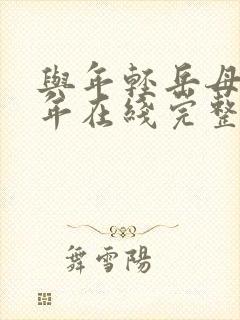 與年輕岳母
年在綫完整
舞雪陽